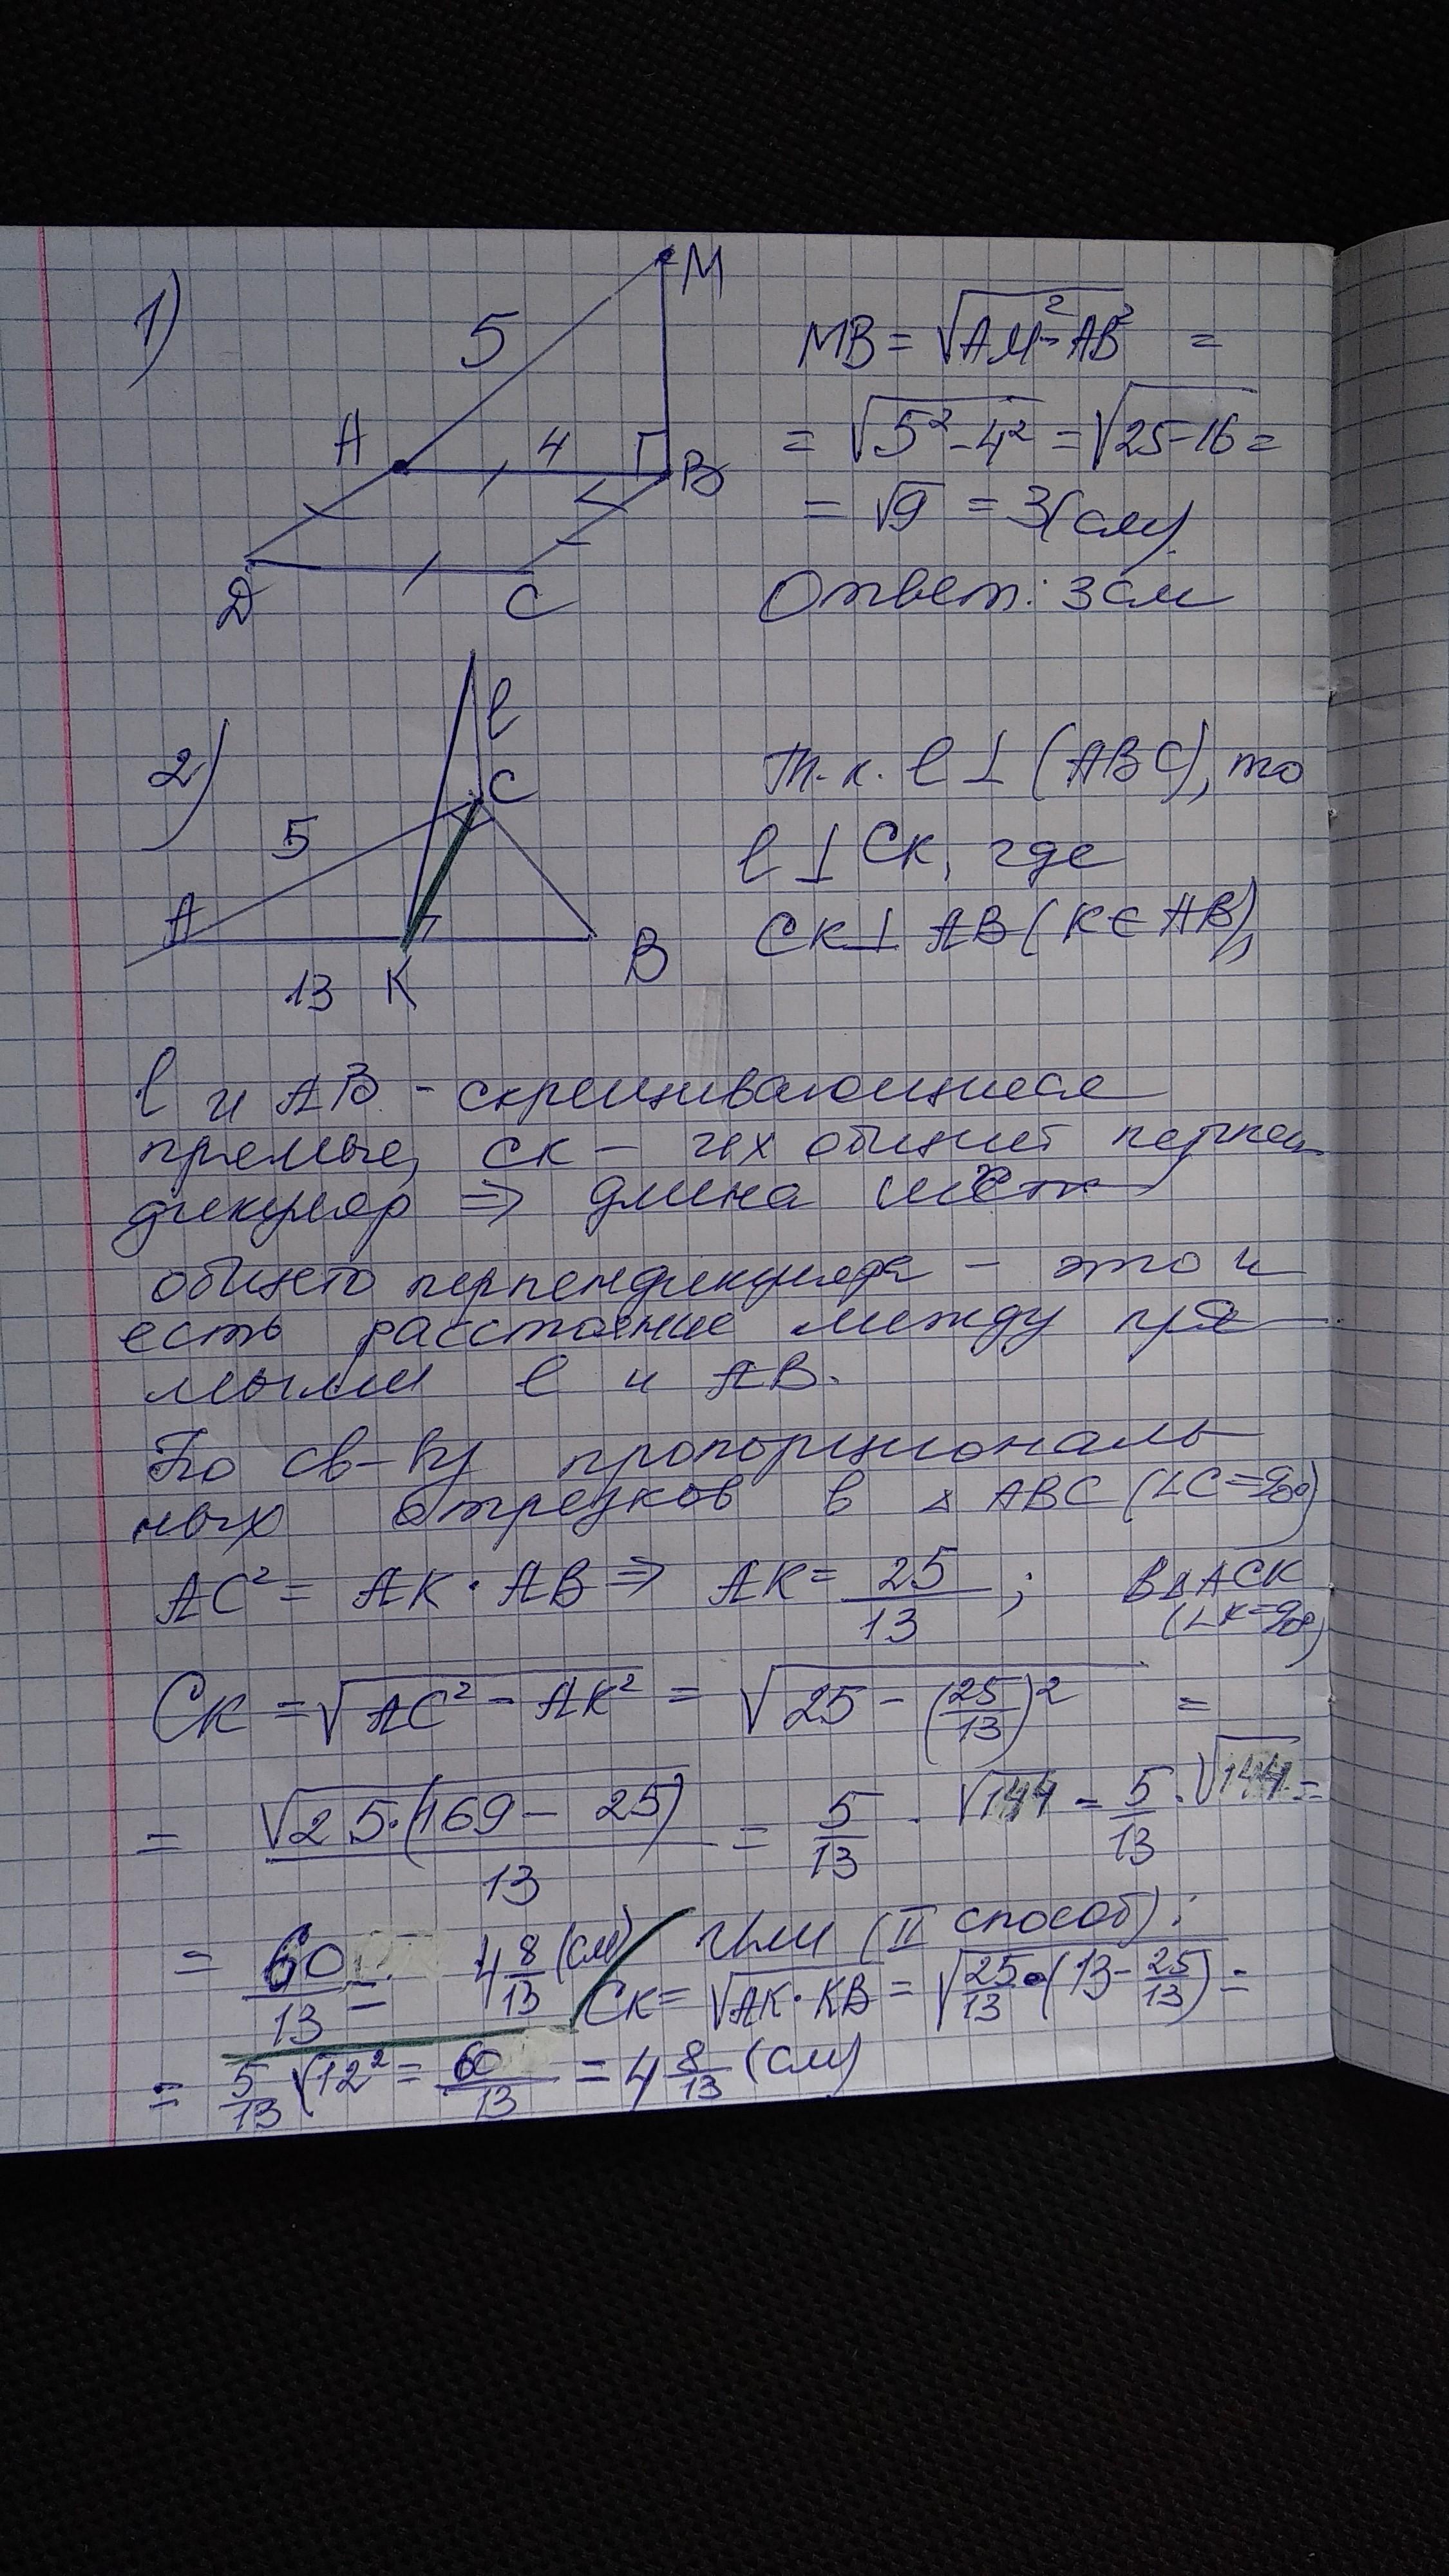 1)
M
5
A
4
B
D
C
MB = √AM² - AB² =
= √5² - 4² = √25-16 =
= √9 = 3(см)
Ответ: 3 см
2)
l
C
5
A
13
K
B
Т.к. l ⊥ (ABC), то
l ⊥ CK, где
CK ⊥ AB (K∈AB),
l и AB - скрещивающиеся
прямые, CK - их общий перпен
дикуляр ⇒ длина
общего перпендикуляра - это и
есть расстояние между пря-
мыми l и AB.
По св-ву пропорциональ
ных отрезков в △ABC (∠C=90°)
AC² = AK · AB ⇒ AK = 25/13 ; В △ACK
(∠K=90°)
CK = √AC² - AK² = √25 - (25/13)² =
= √25·(169 - 25)/13 = 5/13 · √144 = 5/13 · √144 =
= 60/13 = 4 8/13 (см) или (II способ):
CK = √AK · KB = √25/13 · (13 - 25/13) =
= 5/13 √12² = 60/13 = 4 8/13 (см)